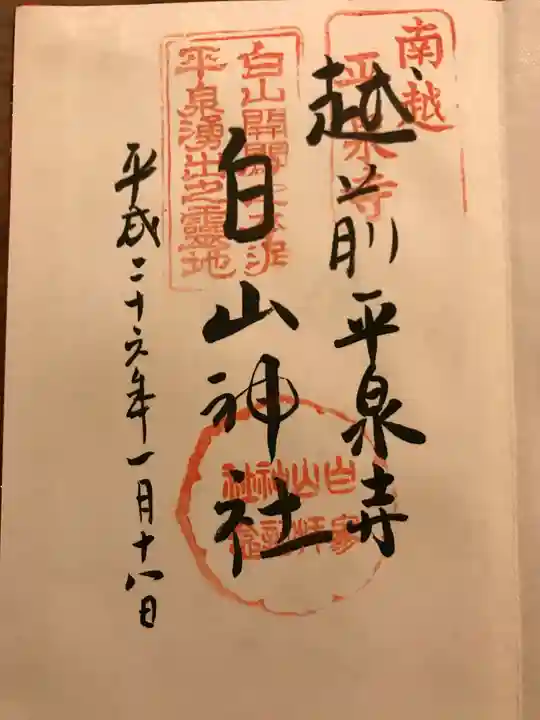 南越
平泉寺
越前平泉寺
白山開闢之
平泉湧出之靈地
白山神社
平成二十六年一月十八日
白山神社